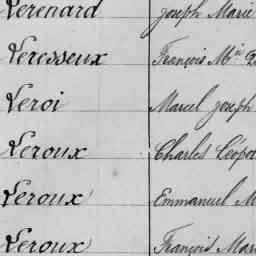 Lerenard Joseph Marie
Leresseux François Mie
Leroi Marcel Joseph
Leroux Charles Léopol
Leroux Emmanuel M
Leroux François Mari